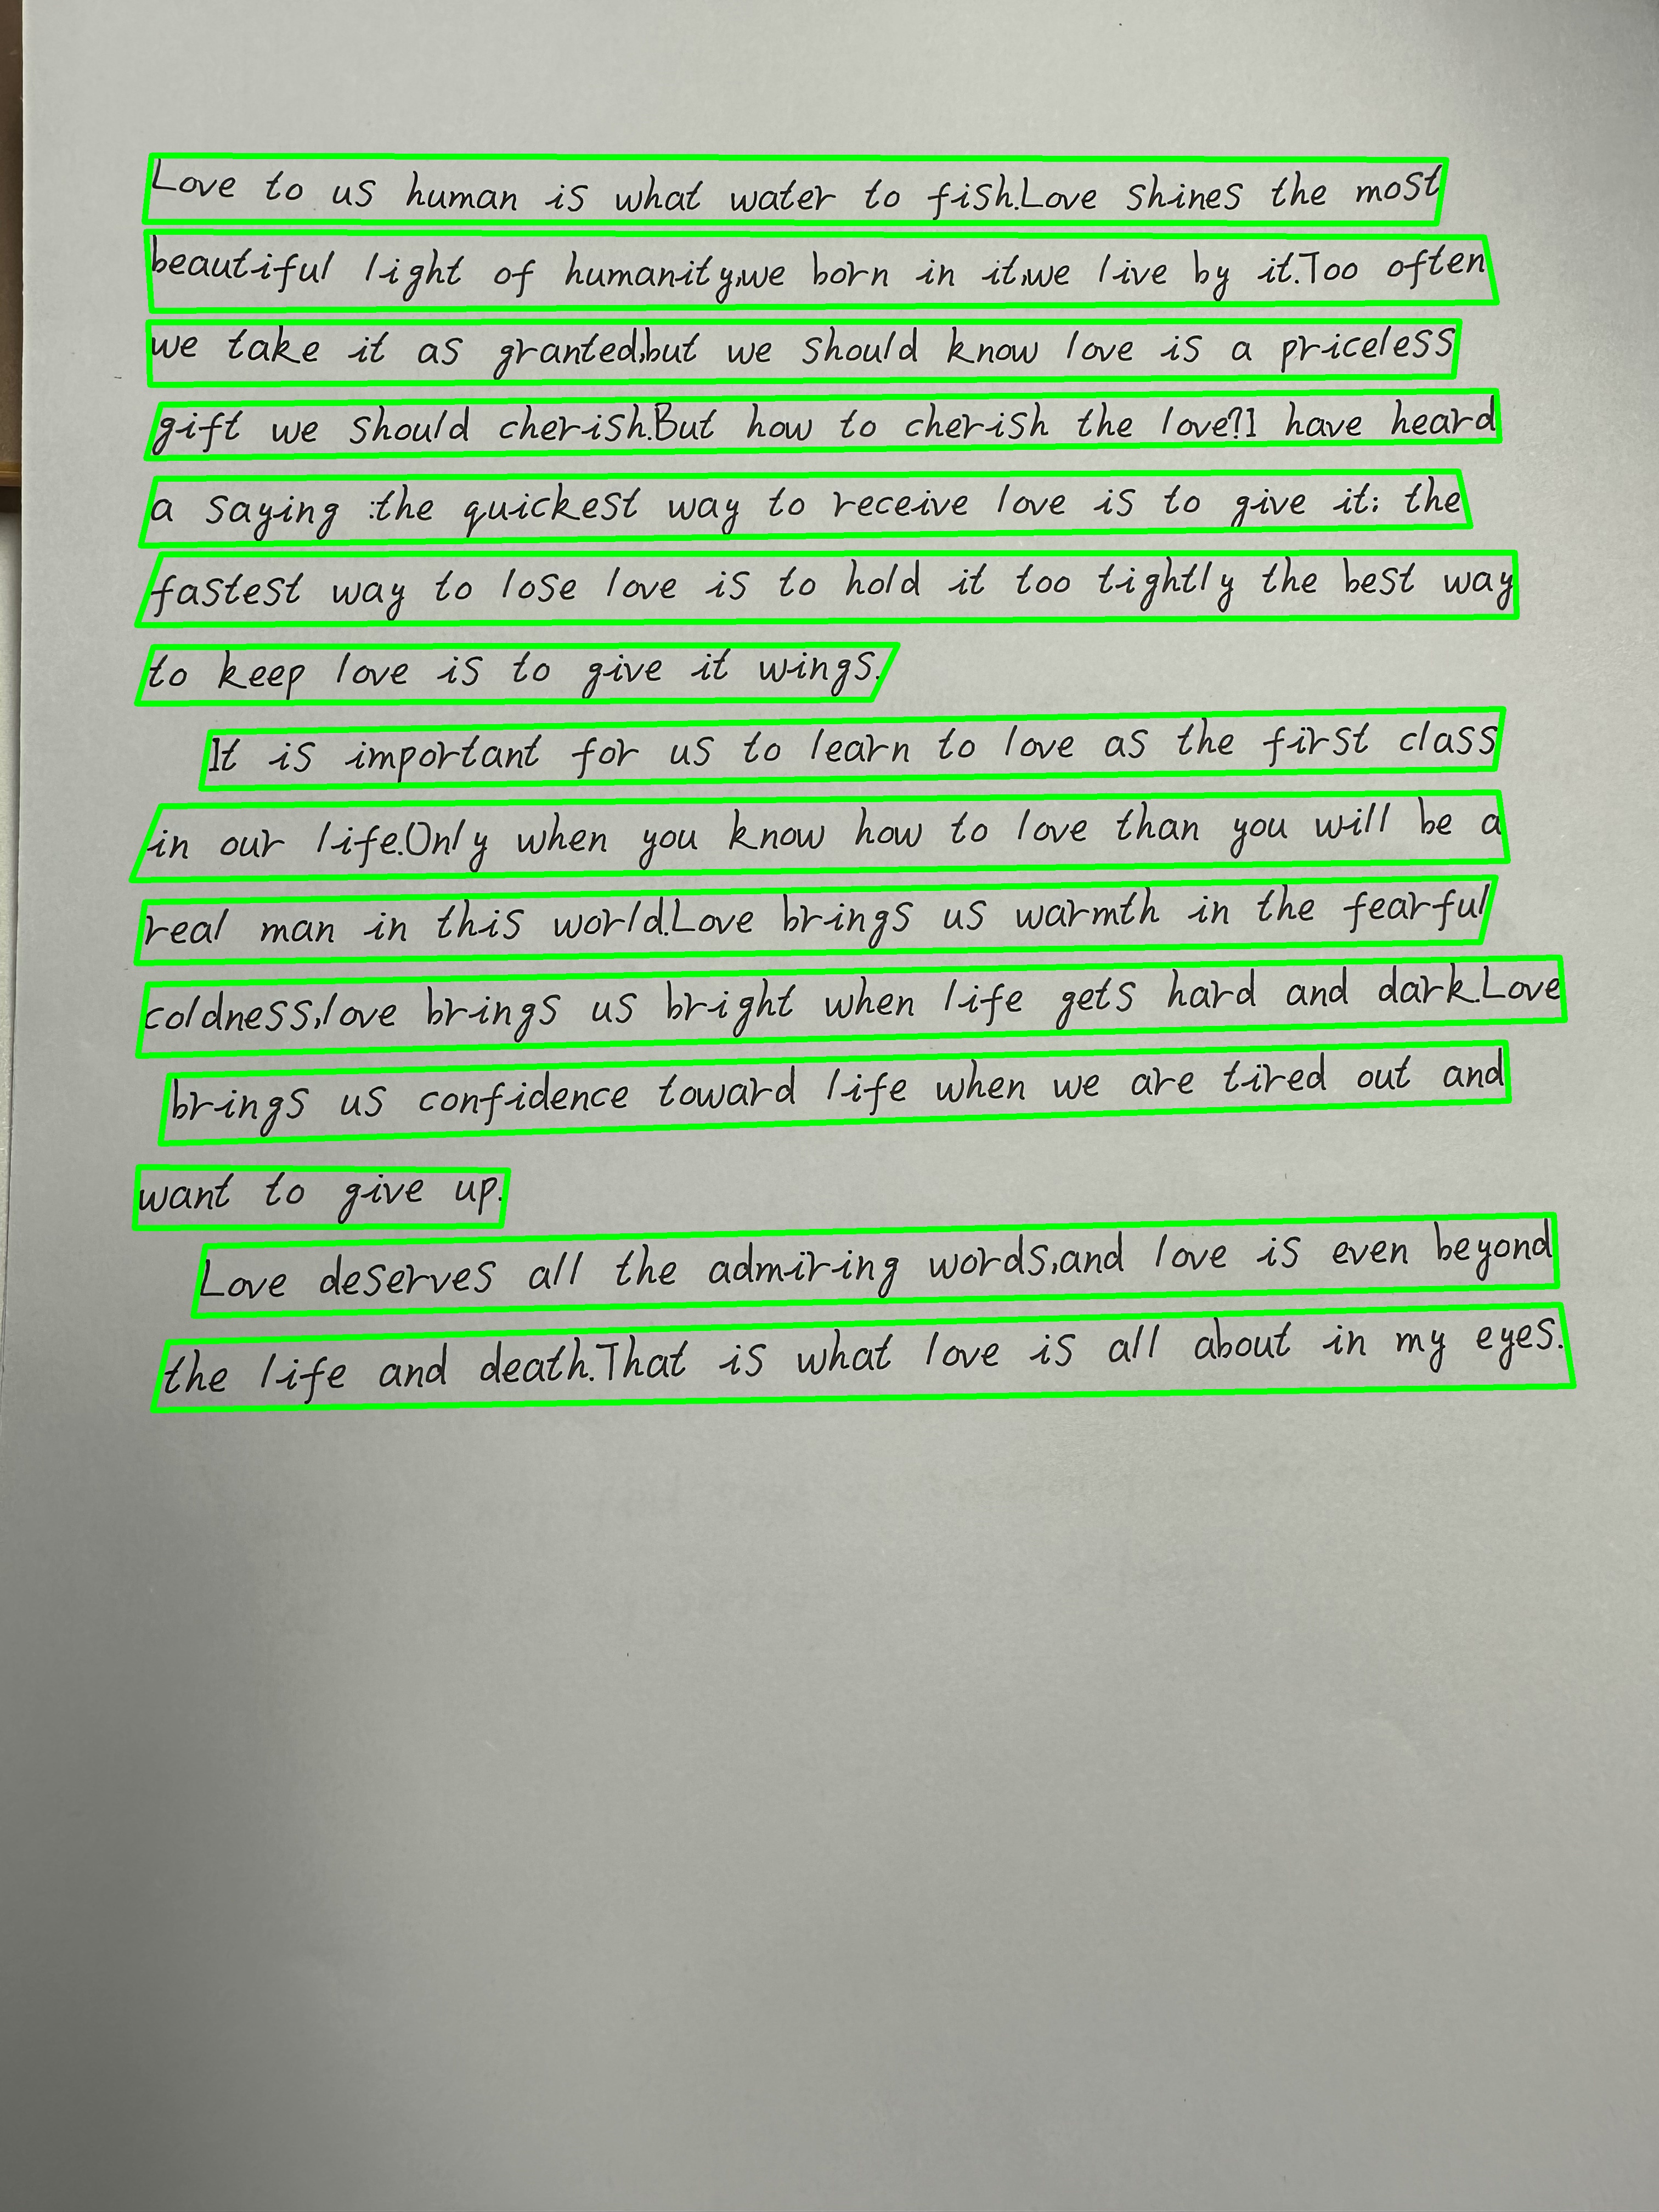 Love to us human is what water to fish.Love shines the most
beautiful light of humanity,we born in it,we live by it.Too often
we take it as granted,but we should know love is a priceless
gift we should cherish.But how to cherish the love?I have heard
a saying :the quickest way to receive love is to give it; the
fastest way to lose love is to hold it too tightly the best way
to keep love is to give it wings.
It is important for us to learn to love as the first class
in our life.Only when you know how to love than you will be a
real man in this world.Love brings us warmth in the fearful
coldness,love brings us bright when life gets hard and dark.Love
brings us confidence toward life when we are tired out and
want to give up.
Love deserves all the admiring words,and love is even beyond
the life and death.That is what love is all about in my eyes.